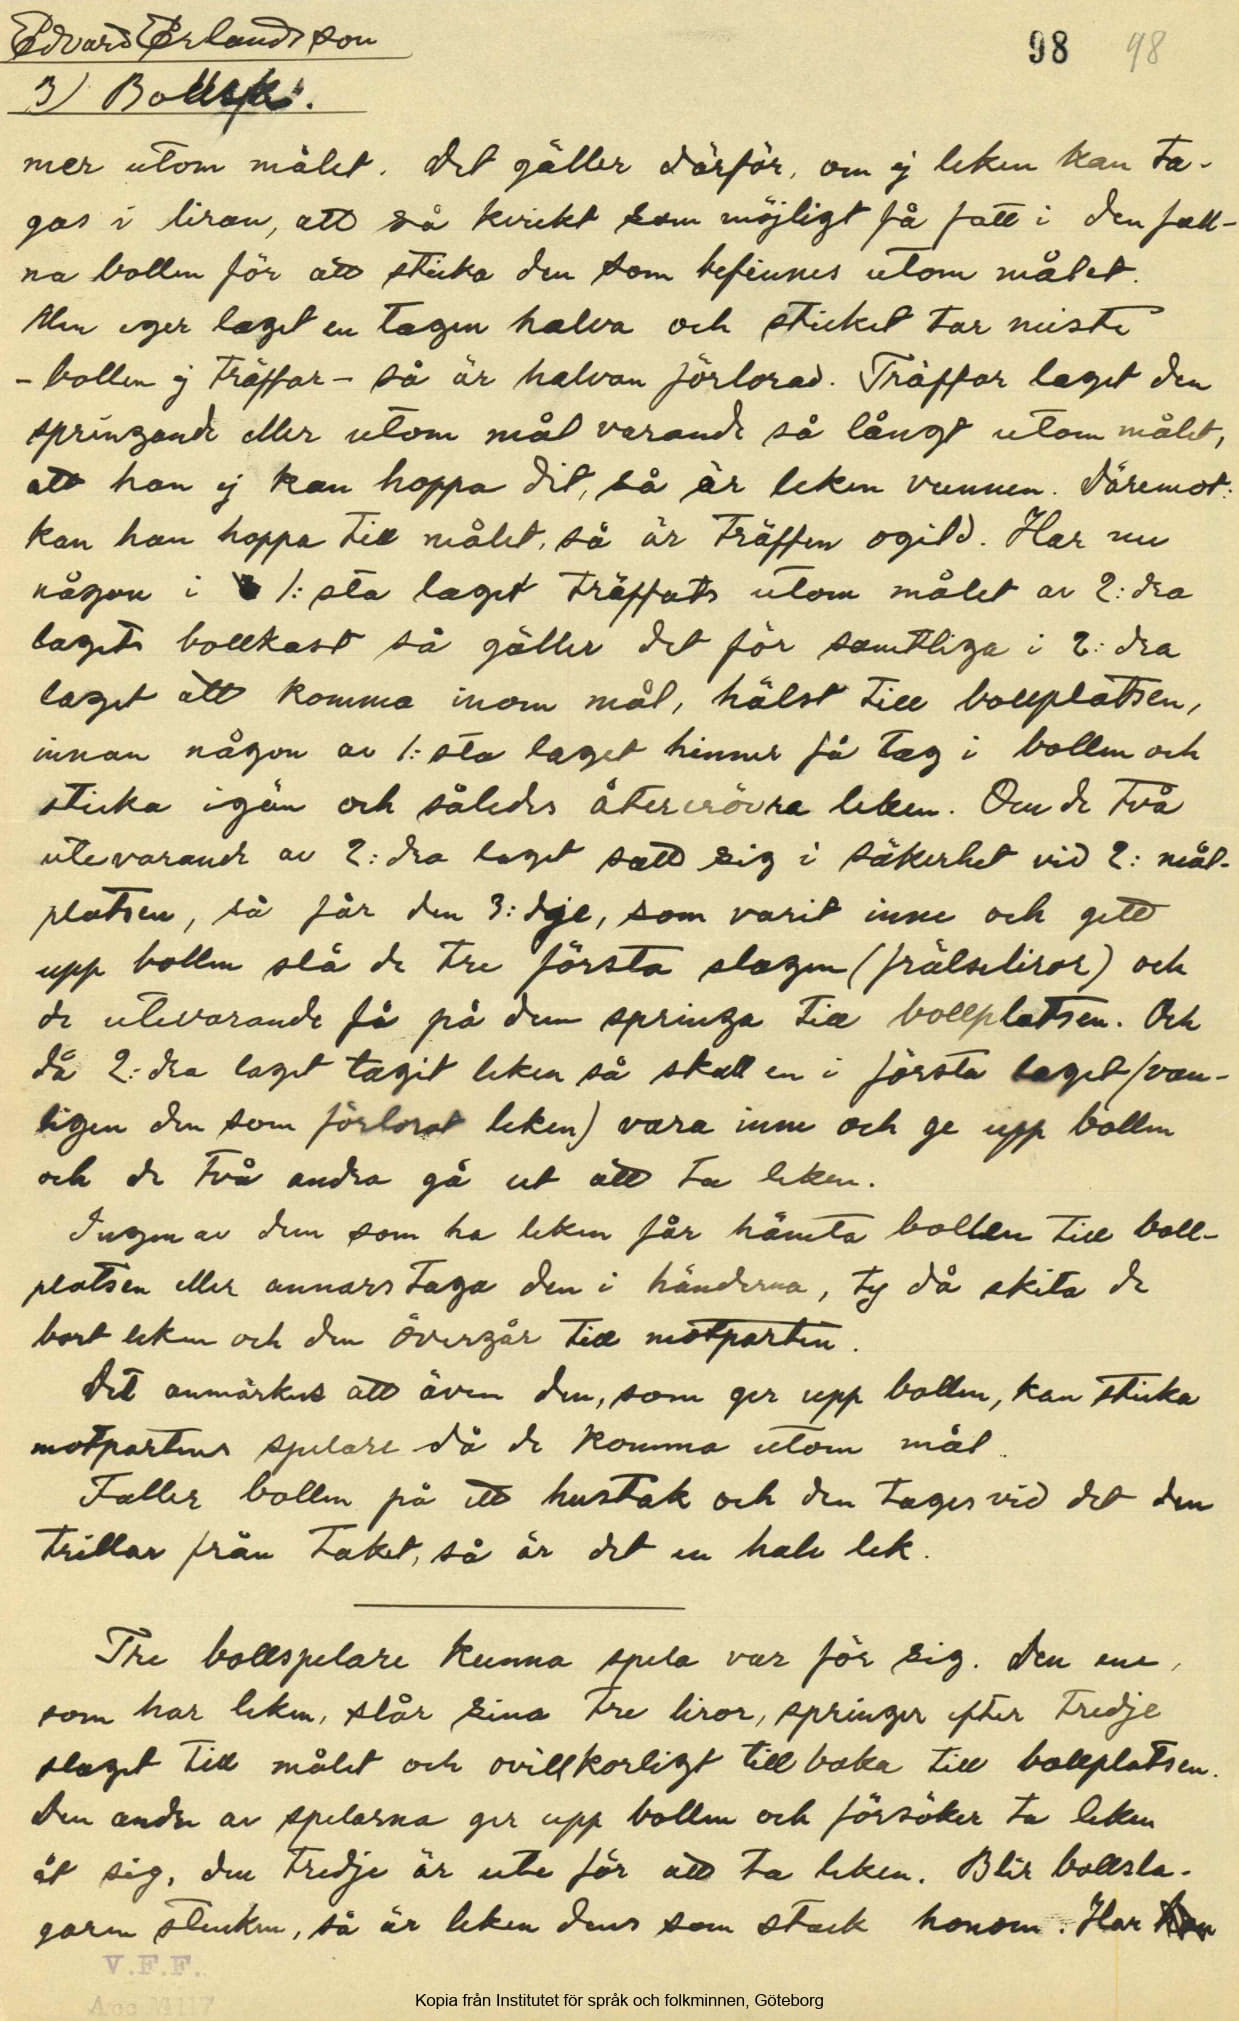 Edvard Erlandsson
98 98
3) Bollsp.
mer utom målet. Det gäller därför, om ej leken kan ta-
gas i liran, att så kvickt som möjligt få fatt i den fall-
na bollen för att sticka den som befinnes utom målet.
Men eger laget en tagen halva och sticket tar miste
- bollen ej träffar - så är halvan förlorad. Träffar laget den
springande eller utom mål varande så långt utom målet,
att han ej kan hoppa dit, så är leken vunnen. Däremot:
kan han hoppa till målet, så är träffen ogild. Har nu
någon i 1:sta laget träffats utom målet av 2:dra
lagets bollkast så gäller det för samtliga i 2:dra
laget att komma inom mål, hälst till bollplatsen,
innan någon av 1:sta laget hinner få tag i bollen och
sticka igän och således återerövra leken. Om de två
utevarande av 2:dra laget satt sig i säkerhet vid 2: mål-
platsen, så får den 3:dje, som varit inne och gett
upp bollen slå de tre första slagen (frälseliror) och
de utevarande få på dem springa till bollplatsen. Och
då 2:dra laget tagit leken så skall en i första laget (van-
ligen den som förlorat leken) vara inne och ge upp bollen
och de två andra gå ut att ta leken.
Ingen av dem som ha leken får hämta bollen till boll-
platsen eller annars taga den i händerna, ty då skita de
bort leken och den övergår till motparten.
Det anmärkes att även den, som ger upp bollen, kan sticka
motpartens spelare då de komma utom mål.
Faller bollen på ett hustak och den tages vid det den
trillar från taket, så är det en halv lek.
Tre bollspelare kunna spela var för sig. Den ene,
som har leken, slår sina tre liror, springer efter tredje
slaget till målet och ovillkorligt tillbaka till bollplatsen.
Den andre av spelarna ger upp bollen och försöker ta leken
åt sig, den tredje är ute för att ta leken. Blir bollsla-
garen stucken, så är leken dens som stack honom. Har
V.F.F.
Acc M117
Kopia från Institutet för språk och folkminnen, Göteborg